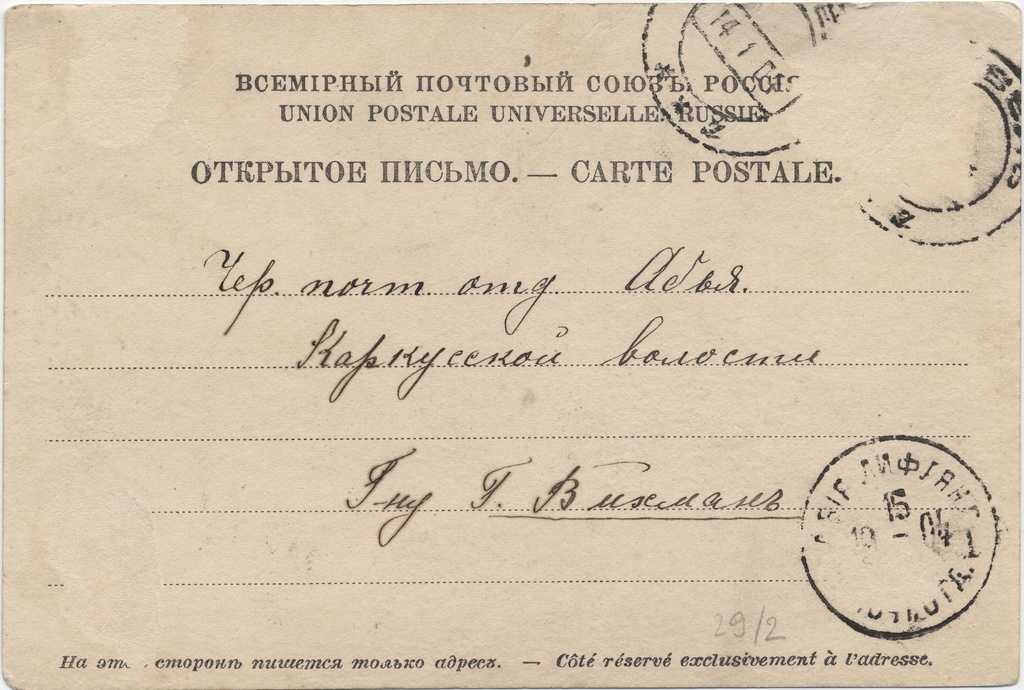 ВСЕМІРНЫЙ ПОЧТОВЫЙ СОЮЗЪ. РОССІЯ
UNION POSTALE UNIVERSELLE. RUSSIE.
ОТКРЫТОЕ ПИСЬМО. — CARTE POSTALE.
14 1
Чер. почт. отд. Абья.
Каркусской волости
Г-ну Г. Вихманъ
ЛИФЛЯН
15
1
29/2
На сторонѣ пишется только адресъ. — Côté réservé exclusivement à l'adresse.